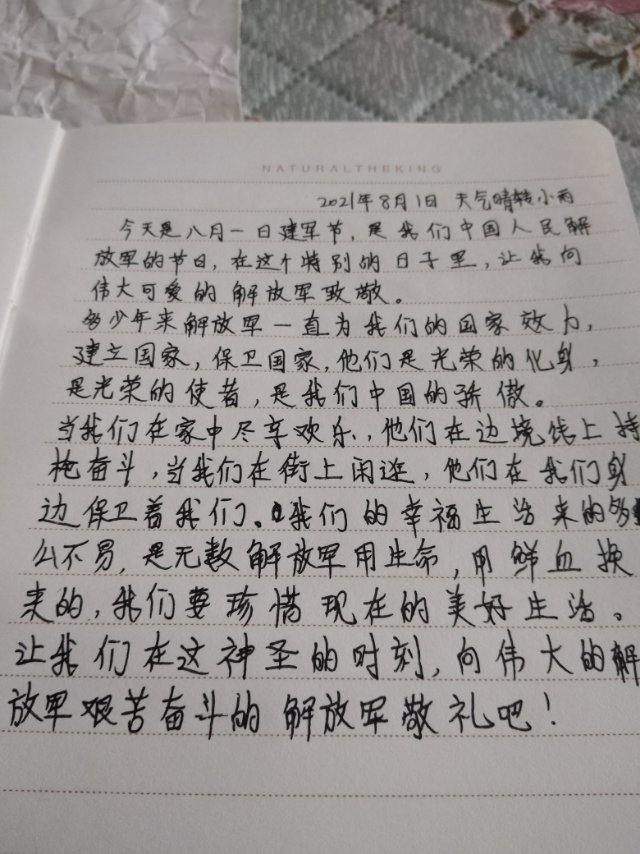 NATURALTHEKING
2021年8月1日 天气晴转小雨
今天是八月一日建军节,是我们中国人民解
放军的节日,在这个特别的日子里,让我向
伟大可爱的解放军致敬。
多少年来解放军一直为我们的国家效力,
建立国家,保卫国家,他们是光荣的化身,
是光荣的使者,是我们中国的骄傲。
当我们在家中尽享欢乐,他们在边境线上持
枪奋斗,当我们在街上闲逛,他们在我们身
边保卫着我们。我们的幸福生活来的多
么不易,是无数解放军用生命,用鲜血换
来的,我们要珍惜现在的美好生活。
让我们在这神圣的时刻,向伟大的解
放军艰苦奋斗的解放军敬礼吧!